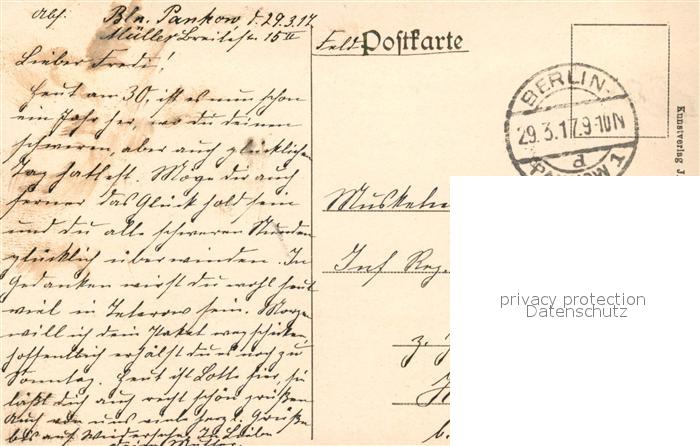 Abs. Bln. Pankow d. 29.3.17
Müller Breitestr. 15 II
Lieber Fredi!
Heut am 30, ist es nun schon
ein Jahr her, wo du deinen
schweren, aber auch glücklichen
Tag hattest. Möge dir auch
ferner das Glück hold sein
und du alle schweren Stunden
glücklich überwinden. In
Gedanken wirst du wohl heut
viel in Teterow sein. Morgen
will ich dein Paket wegschicken,
hoffentlich erhälst du es noch zu
Sonntag. Heut ist Lotte hier, sie
läßt dich auch recht schön grüßen
Auch von uns viele herzl. Grüße
bis auf Wiedersehn In Liebe
deine Mutter
Feld Postkarte
BERLIN-
29.3.17.9-10N
d
PANKOW 1
Kunstverlag J.
Musketie
Inf Reg.
z. Z.
b.
privacy protection
Datenschutz